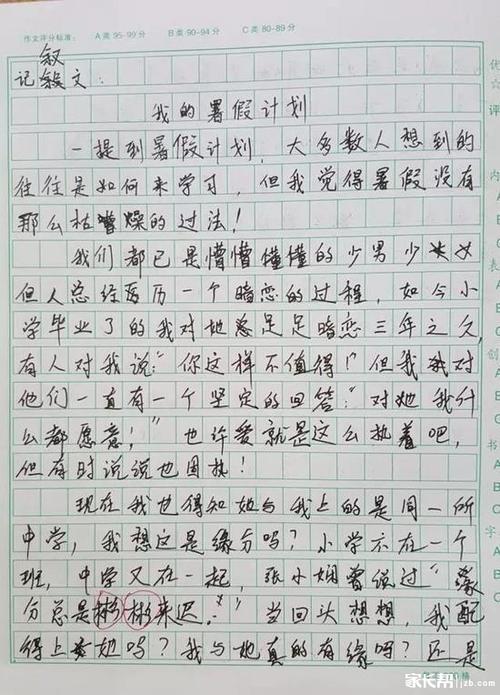 作文评分标准： A类 95-99分 B类 90-94分 C类 80-89分
叙
记叙文：
我的暑假计划
一提到暑假计划，大多数人想到的
往往是如何来学习，但我觉得暑假没有
那么枯燥的过法！
我们都已是懵懵懂懂的少男少女
但人总经历一个暗恋的过程，如今小
学毕业了的我对她足足暗恋三年之久，
有人对我说：“你这样不值得！”但我对
他们一直有一个坚定的回答：“对她我什
么都愿意！”也许爱就是这么执着吧，
但有时说说也固执！
现在我也得知她与我上的是同一所
中学，我想这是缘分吗？小学不在一个
班，中学又在一起，张小娴曾说过“缘
分总是彬彬来迟。”当回头想想，我配
得上她吗？我与她真的有缘吗？还是
优
☆
评
内
表
创
书
字
家长帮 jzb.com